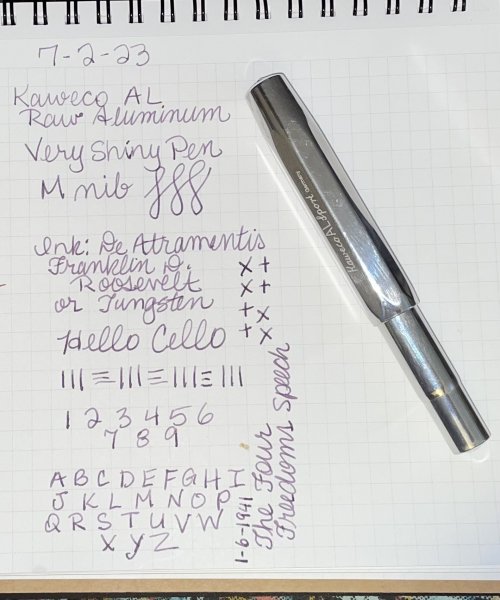 7-2-23
Kaweco AL
Raw Aluminum
Very Shiny Pen
M nib
Ink: De Atramentis
Franklin D.
Roosevelt
or Tungsten
x +
x +
+ x
+ x
Hello Cello
1 2 3 4 5 6
7 8 9
A B C D E F G H I
J K L M N O P
Q R S T U V W
X Y Z
1-6-1941
The Four
Freedoms Speech
Kaweco AL Sport Germany